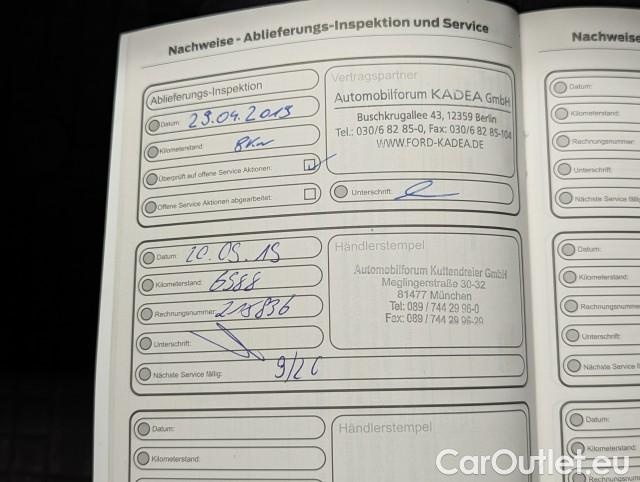 Nachweise - Ablieferungs-Inspektion und Service
Ablieferungs-Inspektion
Datum: 29.04.2019
Kilometerstand: 8km
Überprüft auf offene Service Aktionen:
Offene Service Aktionen abgearbeitet:
Vertragspartner
Automobilforum KADEA GmbH
Buschkrugallee 43, 12359 Berlin
Tel.: 030/6 82 85-0, Fax: 030/6 82 85-104
WWW.FORD-KADEA.DE
Unterschrift:
Datum: 20.09.19
Kilometerstand: 6588
Rechnungsnummer: 215836
Unterschrift:
Nächste Service fällig: 9/20
Händlerstempel
Automobilforum Kuttendreier GmbH
Meglingerstraße 30-32
81477 München
Tel: 089 / 744 29 96-0
Fax: 089 / 744 29 96-29
Datum:
Kilometerstand:
Händlerstempel
Nachweise
Datum:
Kilometerstand:
Rechnungsnummer:
Unterschrift:
Nächste Service fällig
Datum:
Kilometerstand:
Rechnungsnummer
Unterschrift:
Nächste Service f
Datum:
Kilometerstand:
Rechnungsnumm
CarOutlet.eu